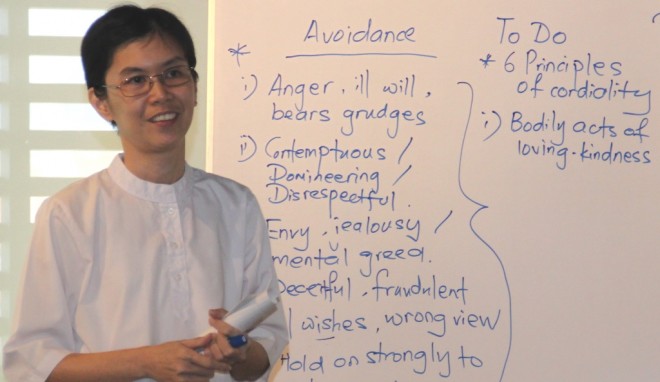 Avoidance
*
i) Anger, ill will,
bears grudges
ii) Contemptuous /
Domineering /
Disrespectful.
Envy, jealousy /
mental greed.
Deceitful, fraudulent
wishes, wrong view
Hold on strongly to
To Do
* 6 Principles
of cordiality
i) Bodily acts of
loving-kindness